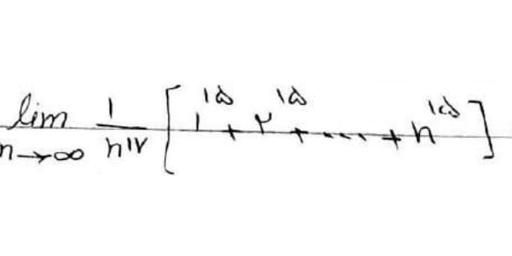 lim n→∞ ۱/n^۱۷ [ ۱^۱۵ + ۲^۱۵ + ..... + n^۱۵ ]